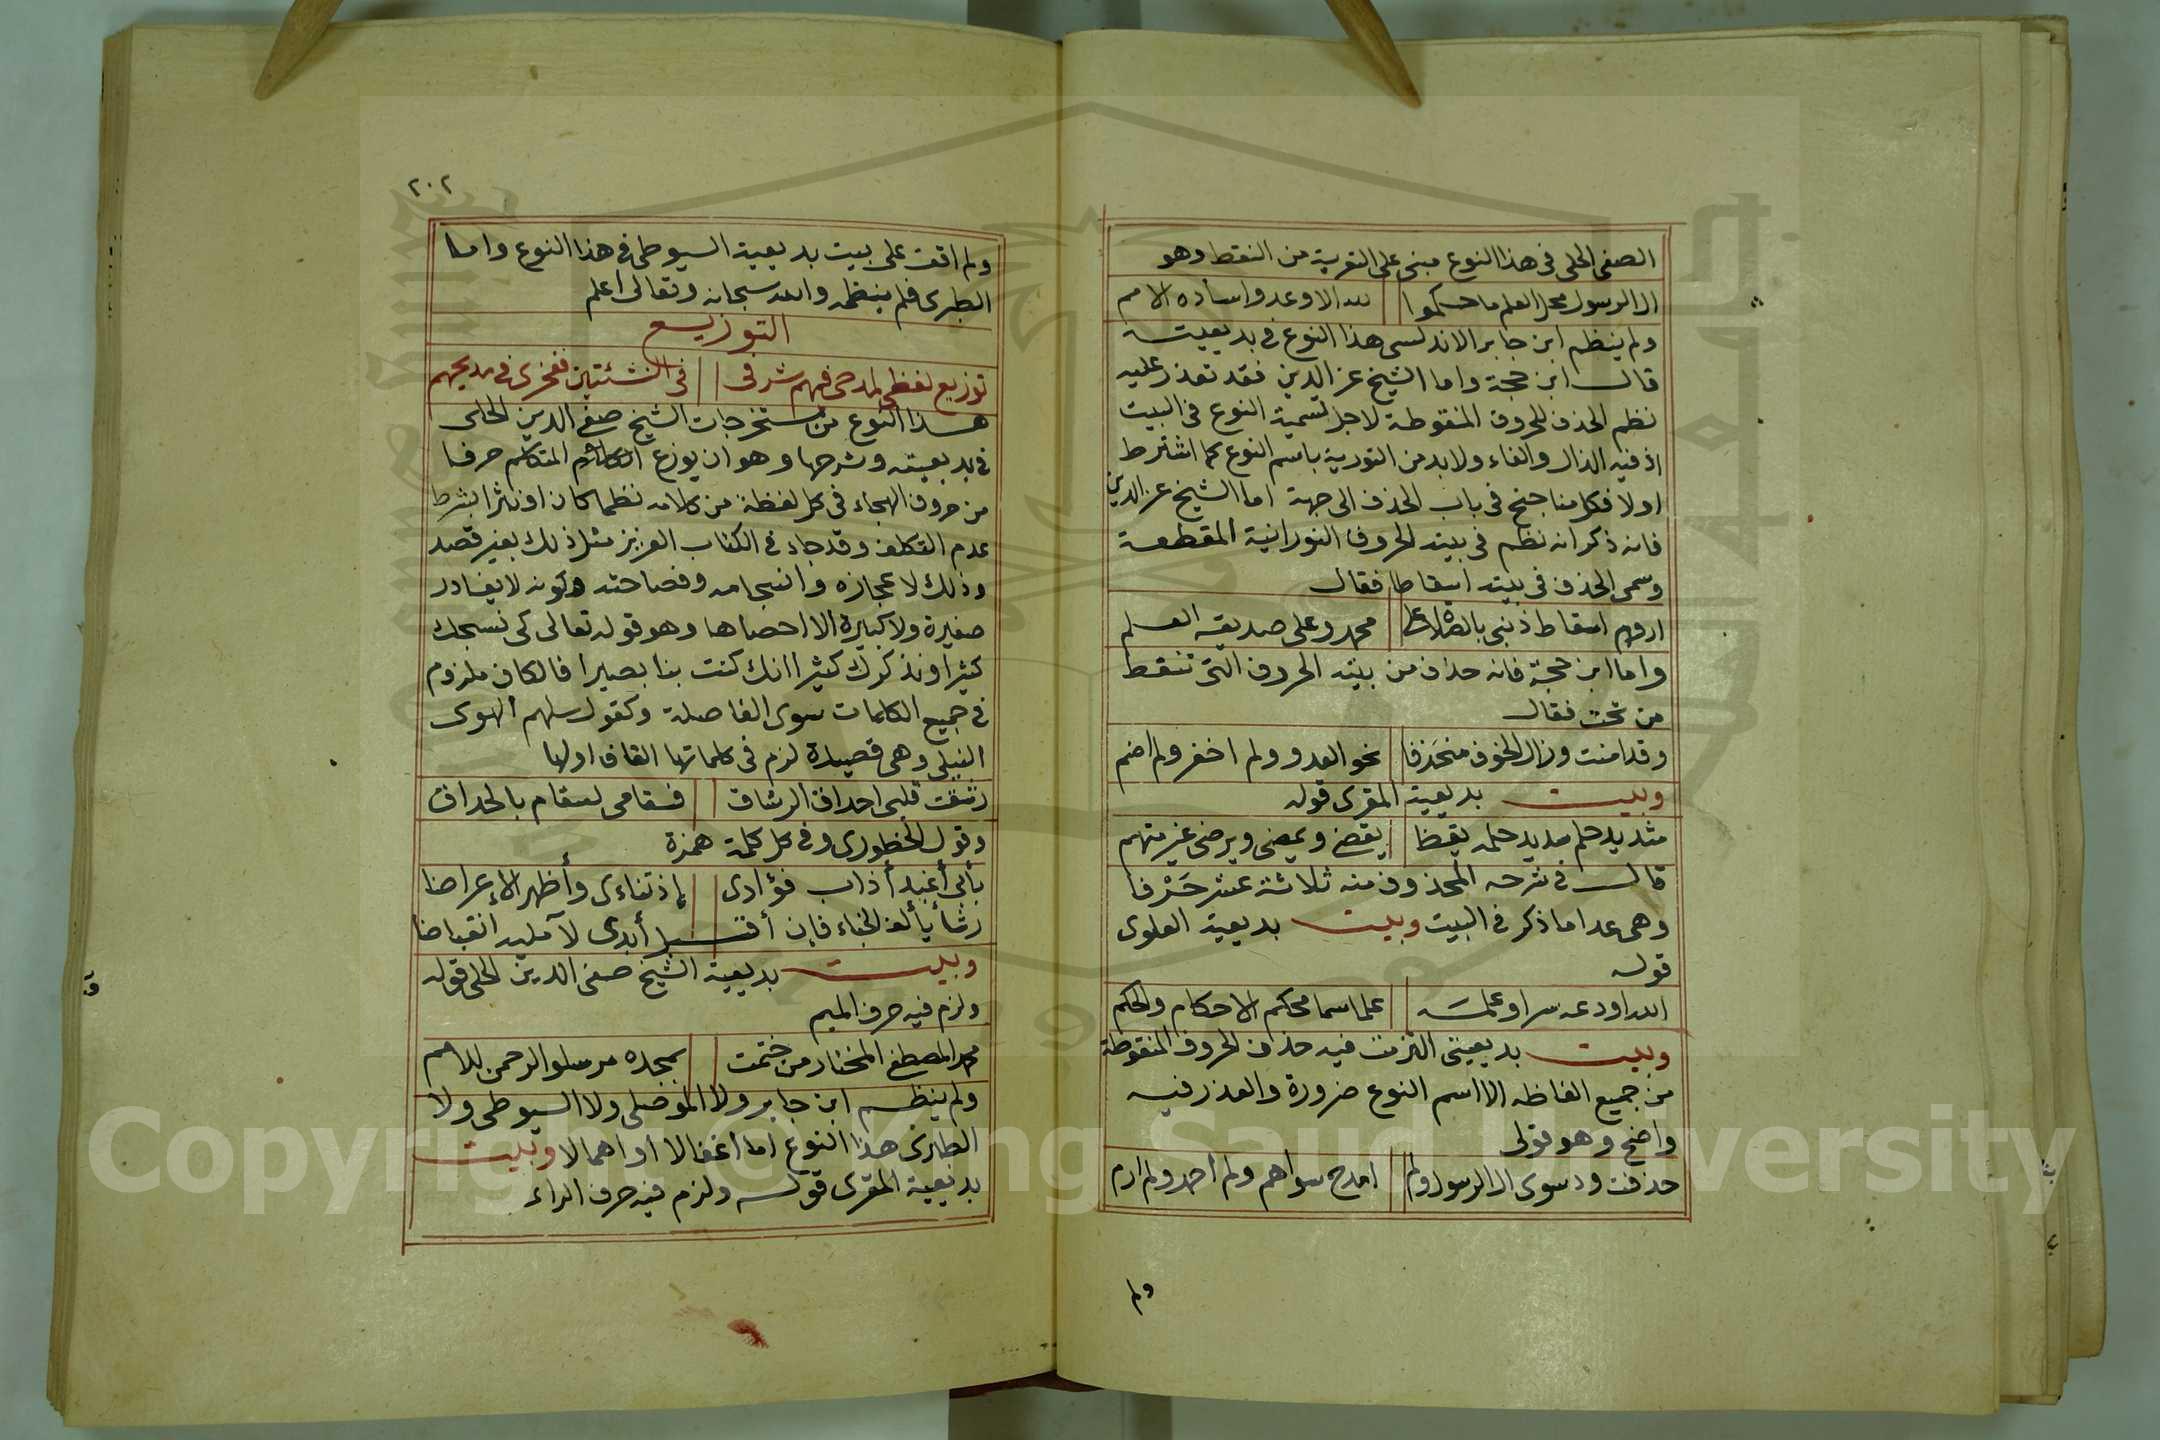 الصفى الحلى فى هذا النوع مبنى على التعرية من النقط وهو
ال الرسول محل العلم ما حكموا لله الا وعدوا سادة الامم
ولم ينظم ابن جابر الاندلسى هذا النوع فى بديعيته
قال ابن حجة واما الشيخ عز الدين فقد تعذر عليه
نظم الحذف للحروف المنقوطة لاجل تسمية النوع فى البيت
اذ فيه الذال والفاء ولا بد من التورية باسم النوع كما اشترط
اولا فكلمنا جنح فى باب الحذف الى جهة اما الشيخ عز الدين
فانه ذكر انه نظم فى بيته الحروف النورانية المقطعة
وسمى الحذف فى بيته اسقاطا فقال
اروم اسقاط ذنبى بالصلاة على محمد وعلى صديقه العلم
واما ابن حجة فانه حذف من بيته الحروف التى تنقط
من تحت فقال
وقد امنت وزال الخوف منحذفا نحو العدو ولم اخفر ولم اضم
وبيت بديعية المقرى قوله
شديد حلم مديد حلمه يقظا يقضى ويمضى ويرضى غير متهم
قال فى شرحه المحذوف منه ثلاثة عشر حَرْفا
وهى عدا ما ذكر فى البيت وبيت بديعية العلوى
قوله
الله اودعه سرا وعلمه علما سما محكم الاحكام والحكم
وبيت بديعيتى التزمت فيه حذف الحروف المنقوطة
من جميع الفاظه الا اسم النوع ضرورة والعذر فيه
واضح وهو قولى
حذفت ود سوى ال الرسول ولم امدح سواهم ولم احمد ولم ارم
ولم
٢٠٢
ولم اقف على بيت بديعية السيوطى فى هذا النوع واما
الطبرى فلم ينظمه والله سبحانه وتعالى اعلم
التوزيع
توزيع لفظى لمدحى فهم شرفى فى النشئتين ففخرى فى مديحهم
هذا النوع من مستخرجات الشيخ صفى الدين الحلى
فى بديعيته وشرحها وهو ان يوزع المتكلم حرفا
من حروف الهجاء فى كل لفظة من كلامه نظما كان او نثرا بشرط
عدم التكلف وقد جاء فى الكتاب العزيز مثل ذلك بغير قصد
وذلك لاعجازه وانسجامه وفصاحته وكونه لا يغادر
صغيرة ولا كبيرة الا احصاها وهو قوله تعالى كى نسبحك
كثيرا ونذكرك كثيرا انك كنت بنا بصيرا فالكاف ملزوم
فى جميع الكلمات سوى الفاصلة وكقول سلهم الهوى
النبلى وهى قصيدة لزم فى كلماتها القاف اولها
رشقت قلبى احداق الرشاق فسقامى لسقام بالحداق
وقول الخطورى وفى كل كلمة همزة
بأبى أغيد أذاب فؤادى إذ تناءى وأظهر الإعراضا
رشأ يألف الخباء فإن أقبل أبدى لآمليه انقباضا
وبيت بديعية الشيخ صفى الدين الحلى قوله
ولزم فيه حرف الميم
محمد المصطفى المختار من ختمت بمجده مرسلو الرحمن للامم
ولم ينظم ابن جابر ولا الموصلى ولا السيوطى ولا
الطبرى هذا النوع اما اغفالا او اهمالا وبيت
بديعية المقرى قوله ولزم فيه حرف الراء
Copyright © King Saud University